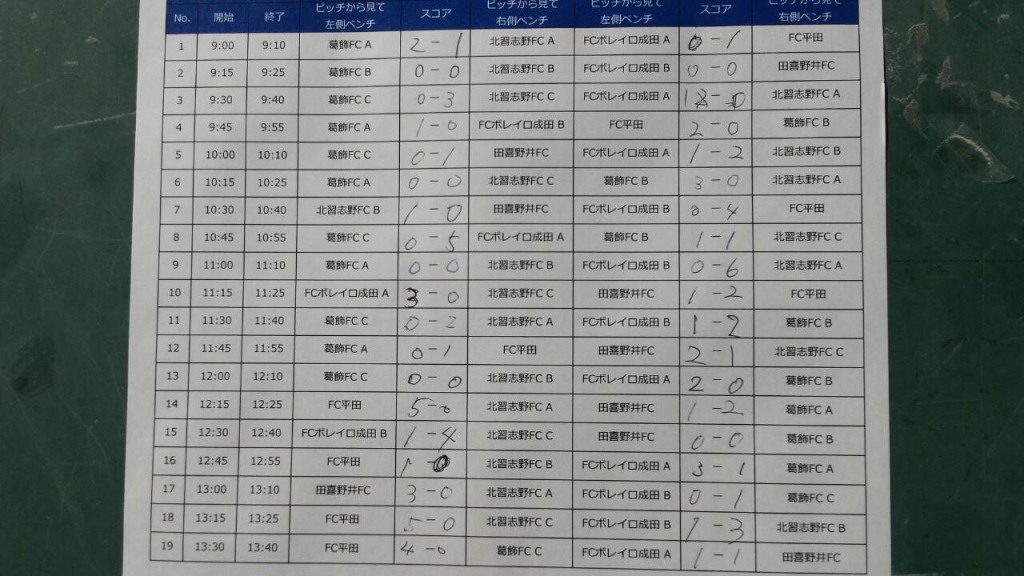 No. 開始 終了 ピッチから見て 左側ベンチ スコア ピッチから見て 右側ベンチ ピッチから見て 左側ベンチ スコア ピッチから見て 右側ベンチ
1 9:00 9:10 葛飾FC A 2-1 北習志野FC A FCボレイロ成田 A 0-1 FC平田
2 9:15 9:25 葛飾FC B 0-0 北習志野FC B FCボレイロ成田 B 0-0 田喜野井FC
3 9:30 9:40 葛飾FC C 0-3 北習志野FC C FCボレイロ成田 A 北習志野FC A
4 9:45 9:55 葛飾FC A 1-0 FCボレイロ成田 B FC平田 2-0 葛飾FC B
5 10:00 10:10 葛飾FC C 0-1 田喜野井FC FCボレイロ成田 A 1-2 北習志野FC B
6 10:15 10:25 葛飾FC A 0-0 北習志野FC C 葛飾FC B 3-0 北習志野FC A
7 10:30 10:40 北習志野FC B 1-0 田喜野井FC FCボレイロ成田 B 0-4 FC平田
8 10:45 10:55 葛飾FC C 0-5 FCボレイロ成田 A 葛飾FC B 1-1 北習志野FC C
9 11:00 11:10 葛飾FC A 0-0 北習志野FC B FCボレイロ成田 B 0-6 北習志野FC A
10 11:15 11:25 FCボレイロ成田 A 3-0 北習志野FC C 田喜野井FC 1-2 FC平田
11 11:30 11:40 葛飾FC C 0-2 北習志野FC A FCボレイロ成田 B 1-2 葛飾FC B
12 11:45 11:55 葛飾FC A 0-1 FC平田 田喜野井FC 2-1 北習志野FC C
13 12:00 12:10 葛飾FC C 0-0 北習志野FC B FCボレイロ成田 A 2-0 葛飾FC B
14 12:15 12:25 FC平田 5-0 北習志野FC A 田喜野井FC 1-2 葛飾FC A
15 12:30 12:40 FCボレイロ成田 B 1-4 北習志野FC C 田喜野井FC 0-0 葛飾FC B
16 12:45 12:55 FC平田 1-0 北習志野FC B FCボレイロ成田 A 3-1 葛飾FC A
17 13:00 13:10 田喜野井FC 3-0 北習志野FC A FCボレイロ成田 B 0-1 葛飾FC C
18 13:15 13:25 FC平田 5-0 北習志野FC C FCボレイロ成田 B 1-3 北習志野FC B
19 13:30 13:40 FC平田 4-0 葛飾FC C FCボレイロ成田 A 1-1 田喜野井FC